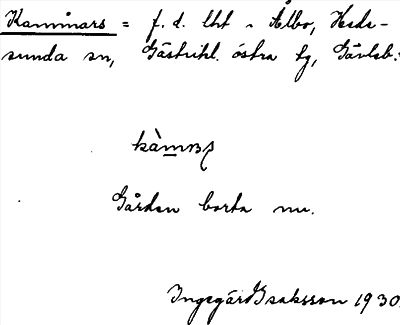 Kammars = f. d. lht i Ålbo, Heds-
sunda sn, Gästrikl. östra tg, Gävleb.
Gården borta nu.
Ingegär Isaksson 1930.